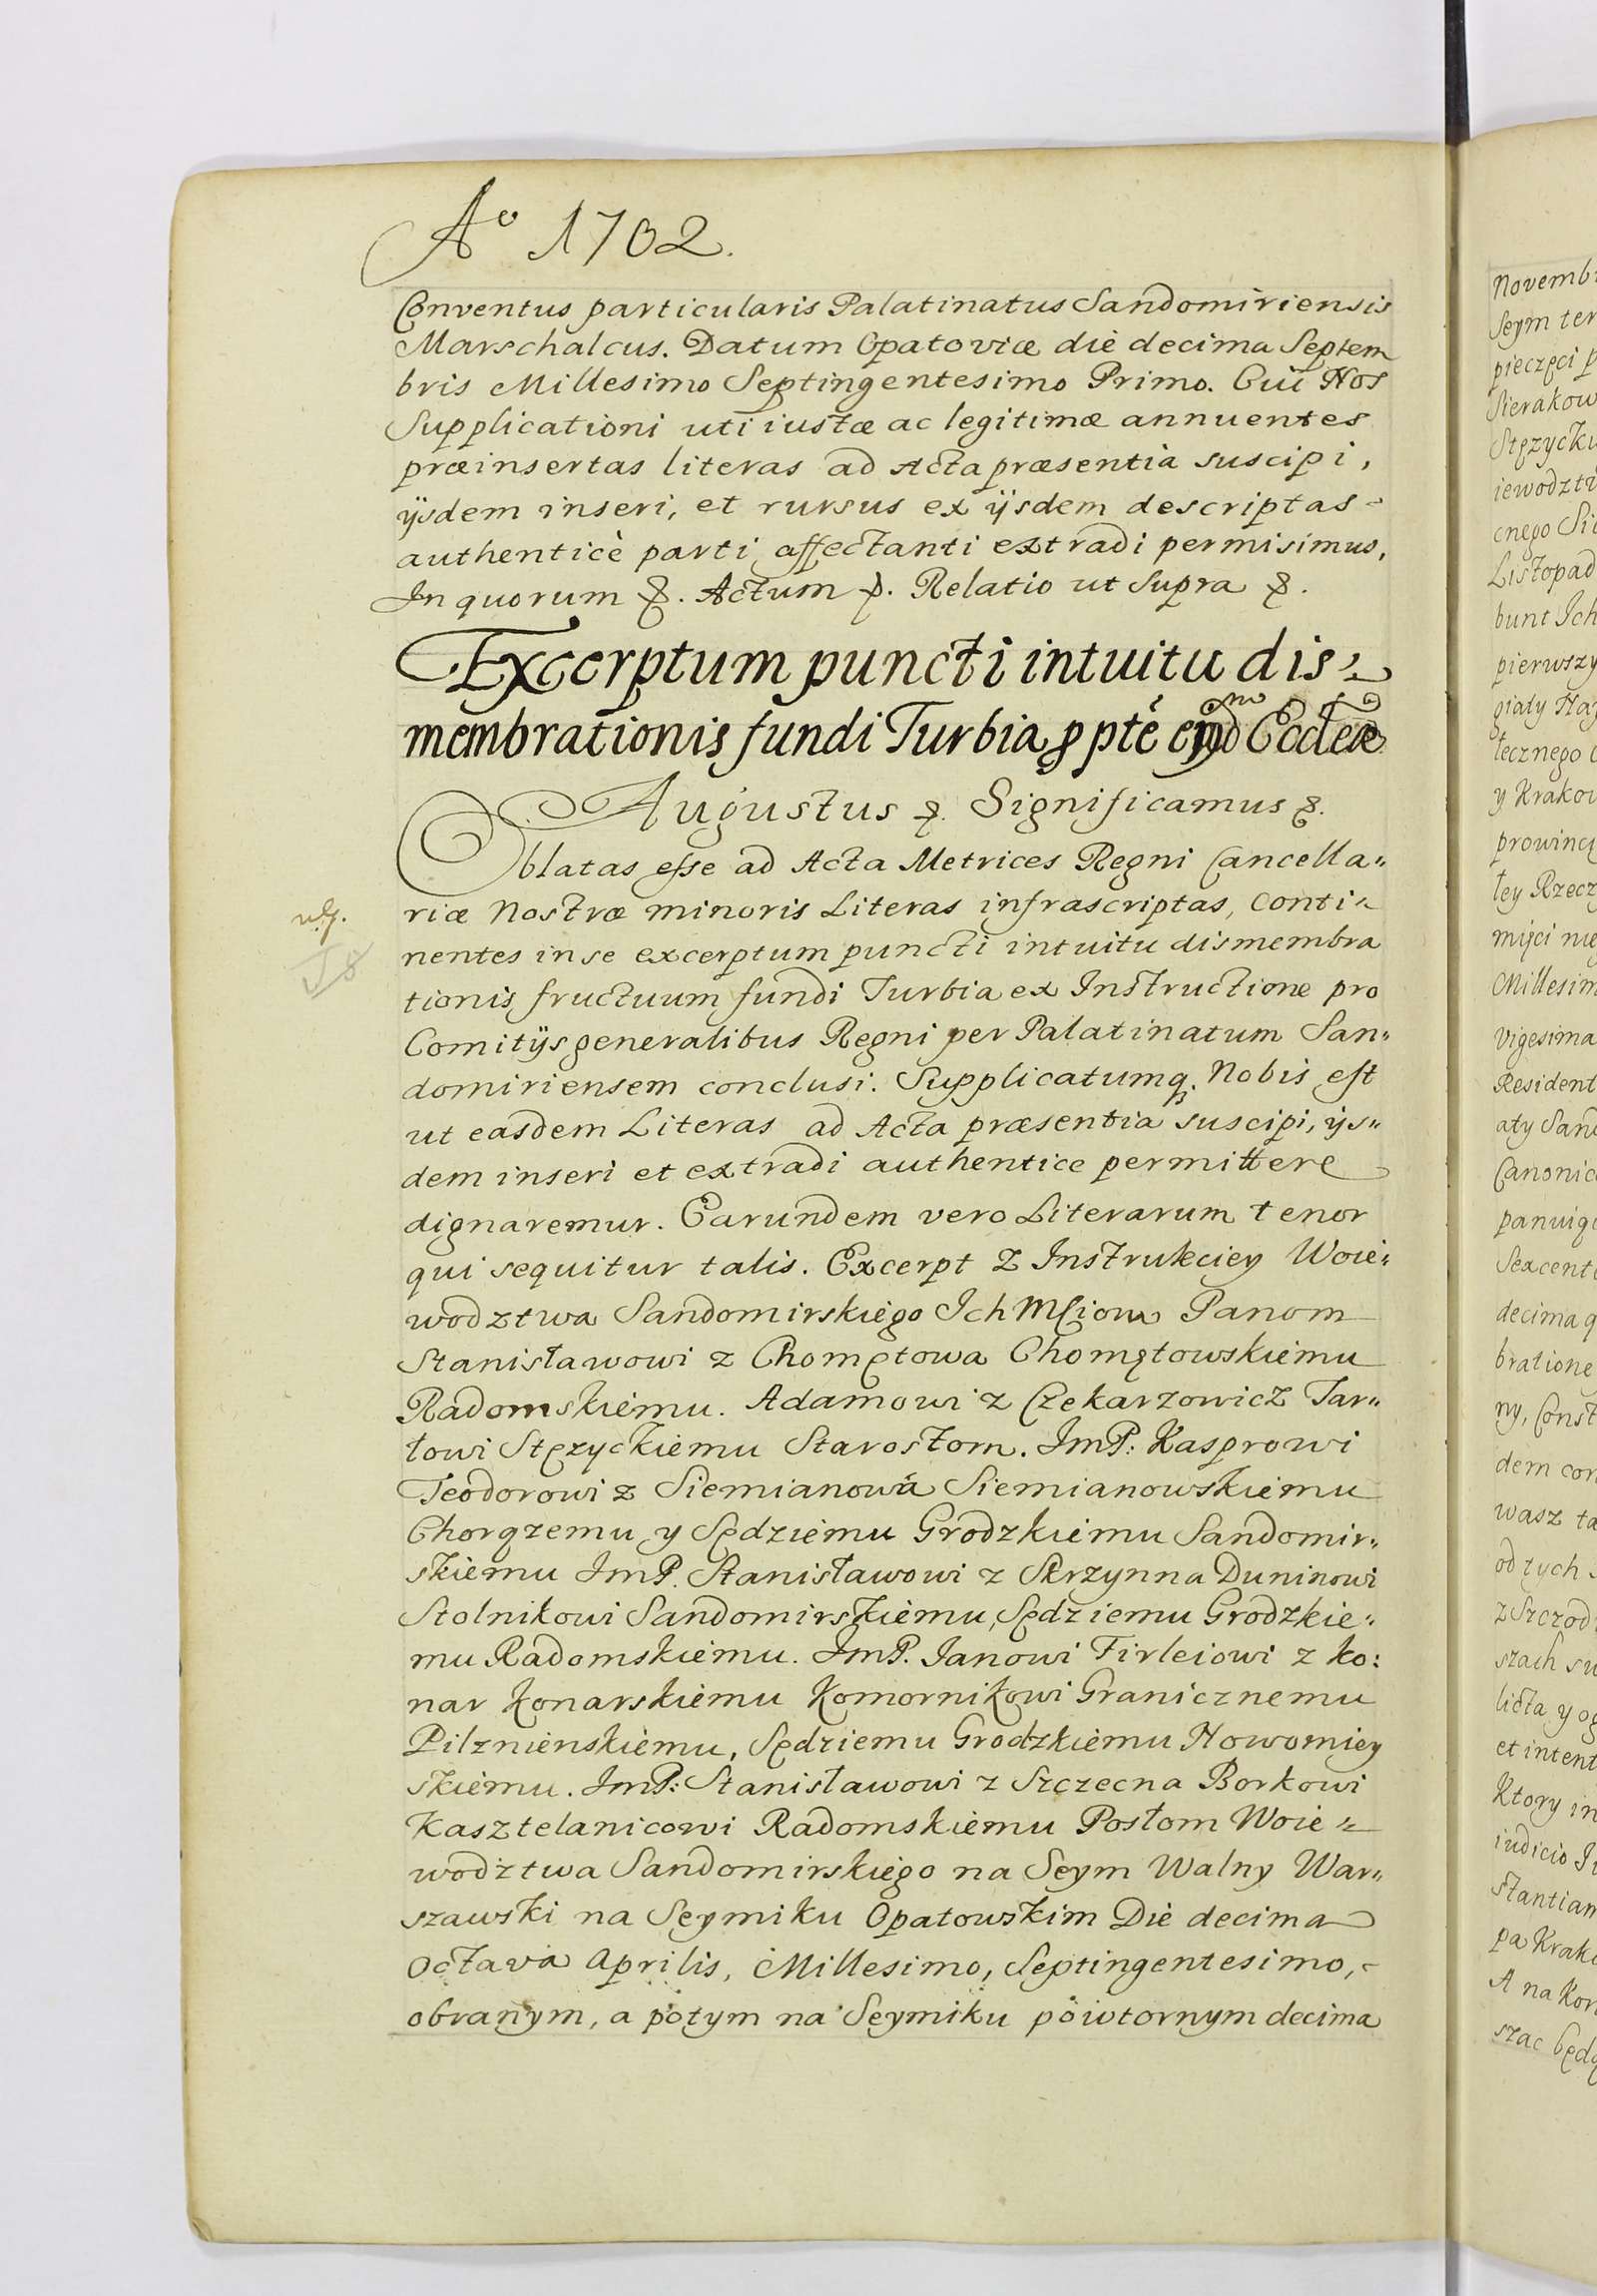 Aº 1702.
Conventus particularis Palatinatus Sandomiriensis
Marschalcus. Datum Opatoviæ die decima Septem
bris Millesimo Septingentesimo Primo. Cui Nos
Supplicationi uti iustæ ac legitimæ annuentes
præinsertas literas ad Acta præsentia suscipi,
ijsdem inseri, et rursus ex ijsdem descriptas-
authenticè parti affectanti extradi permisimus,
In quorum &. Actum &. Relatio ut Supra &.
Excerptum puncti intuitu dis-
membrationis fundi Turbia p ptè Eccleæ
Augustus &. Significamus &.
Oblatas esse ad Acta Metrices Regni Cancella„
riæ Nostræ minoris Literas infrascriptas, Conti„
nentes in se excerptum puncti intuitu dismembra
tionis fructuum fundi Turbia ex Instructione pro
Comitijs generalibus Regni per Palatinatum San„
domiriensem conclusi. Supplicatumq. Nobis est
ut easdem Literas ad Acta præsentia suscipi, ijs„
dem inseri et extradi authentice permittere
dignaremur. Earundem vero Literarum tenor
qui sequitur talis. Excerpt Z Instrukciey Woie„
wodztwa Sandomirskiego Ich Mciom Panom
Stanisławowi z Chomętowa Chomętowskiemu
Radomskiemu. Adamowi z Czekarzowicz Tar„
łowi Stęzyckiemu Starostom. ImP: Kasprowi
Teodorowi z Siemianowá Siemianowskiemu
Chorązemu y Sędziemu Grodzkiemu Sandomir„
skiemu ImP. Stanisławowi z Skrzynna Duninowi
Stolnikowi Sandomirskiemu, Sędziemu Grodzkie„
mu Radomskiemu. ImP. Janowi Firleiowi z ko:
nar konarskiemu Komornikowi Granicznemu
Pilznienskiemu, Sędziemu Grodzkiemu Nowomiey
skiemu. ImP: Stanisławowi z Szczecna Borkowi
Kasztelanicowi Radomskiemu Posłom Woie„
wodztwa Sandomirskiego na Seym Walny War„
szawski na Seymiku Opatowskim Die decima
Octava Aprilis, Millesimo, Septingentesimo,-
obranym, a potym na Seymiku powtornym decima
Novemb
Seym ter
pieczęci p
Sierakow
Stęzycku
iewodzt
cnego Si
Listopad
bunt Ich
pierwszy
giały Na
tecznego
y Krakow
prowincy
ley Rzecz
mijci nie
Millesim
Vigesima
Resident
aty San
Canonic
panuią
Sexcent
decima q
bratione
ny, Const
dem con
wasz ta
od tych
z Szczod
szach su
licta y og
et intent
Ktory in
iudicio I
stantiam
pa Krak
A na Kor
szac będą